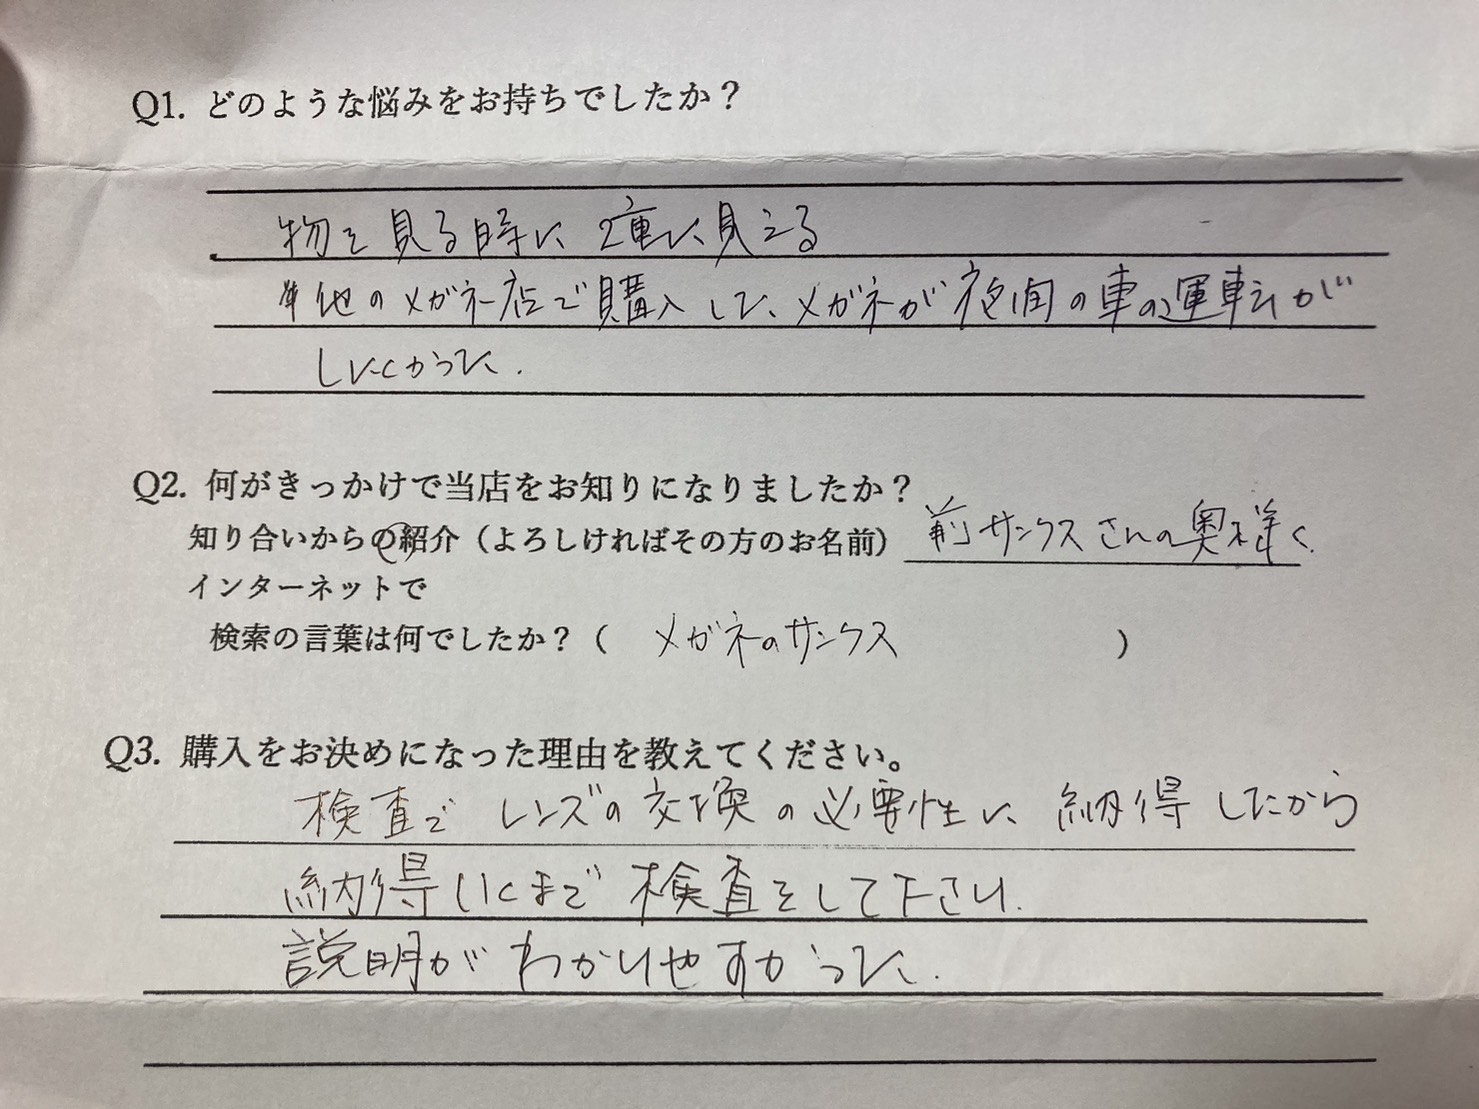 Q1. どのような悩みをお持ちでしたか？
物を見る時に 2重に見える
他のメガネ店で購入した、メガネが夜間の車の運転が
しにくかった.
Q2. 何がきっかけで当店をお知りになりましたか？
知り合いからの紹介（よろしければその方のお名前） 前サンクスさんの奥様
インターネットで
検索の言葉は何でしたか？（ メガネのサンクス ）
Q3. 購入をお決めになった理由を教えてください。
検査で レンズの交換の必要性に 納得したから
納得いくまで 検査をして下さり.
説明が わかりやすかった.